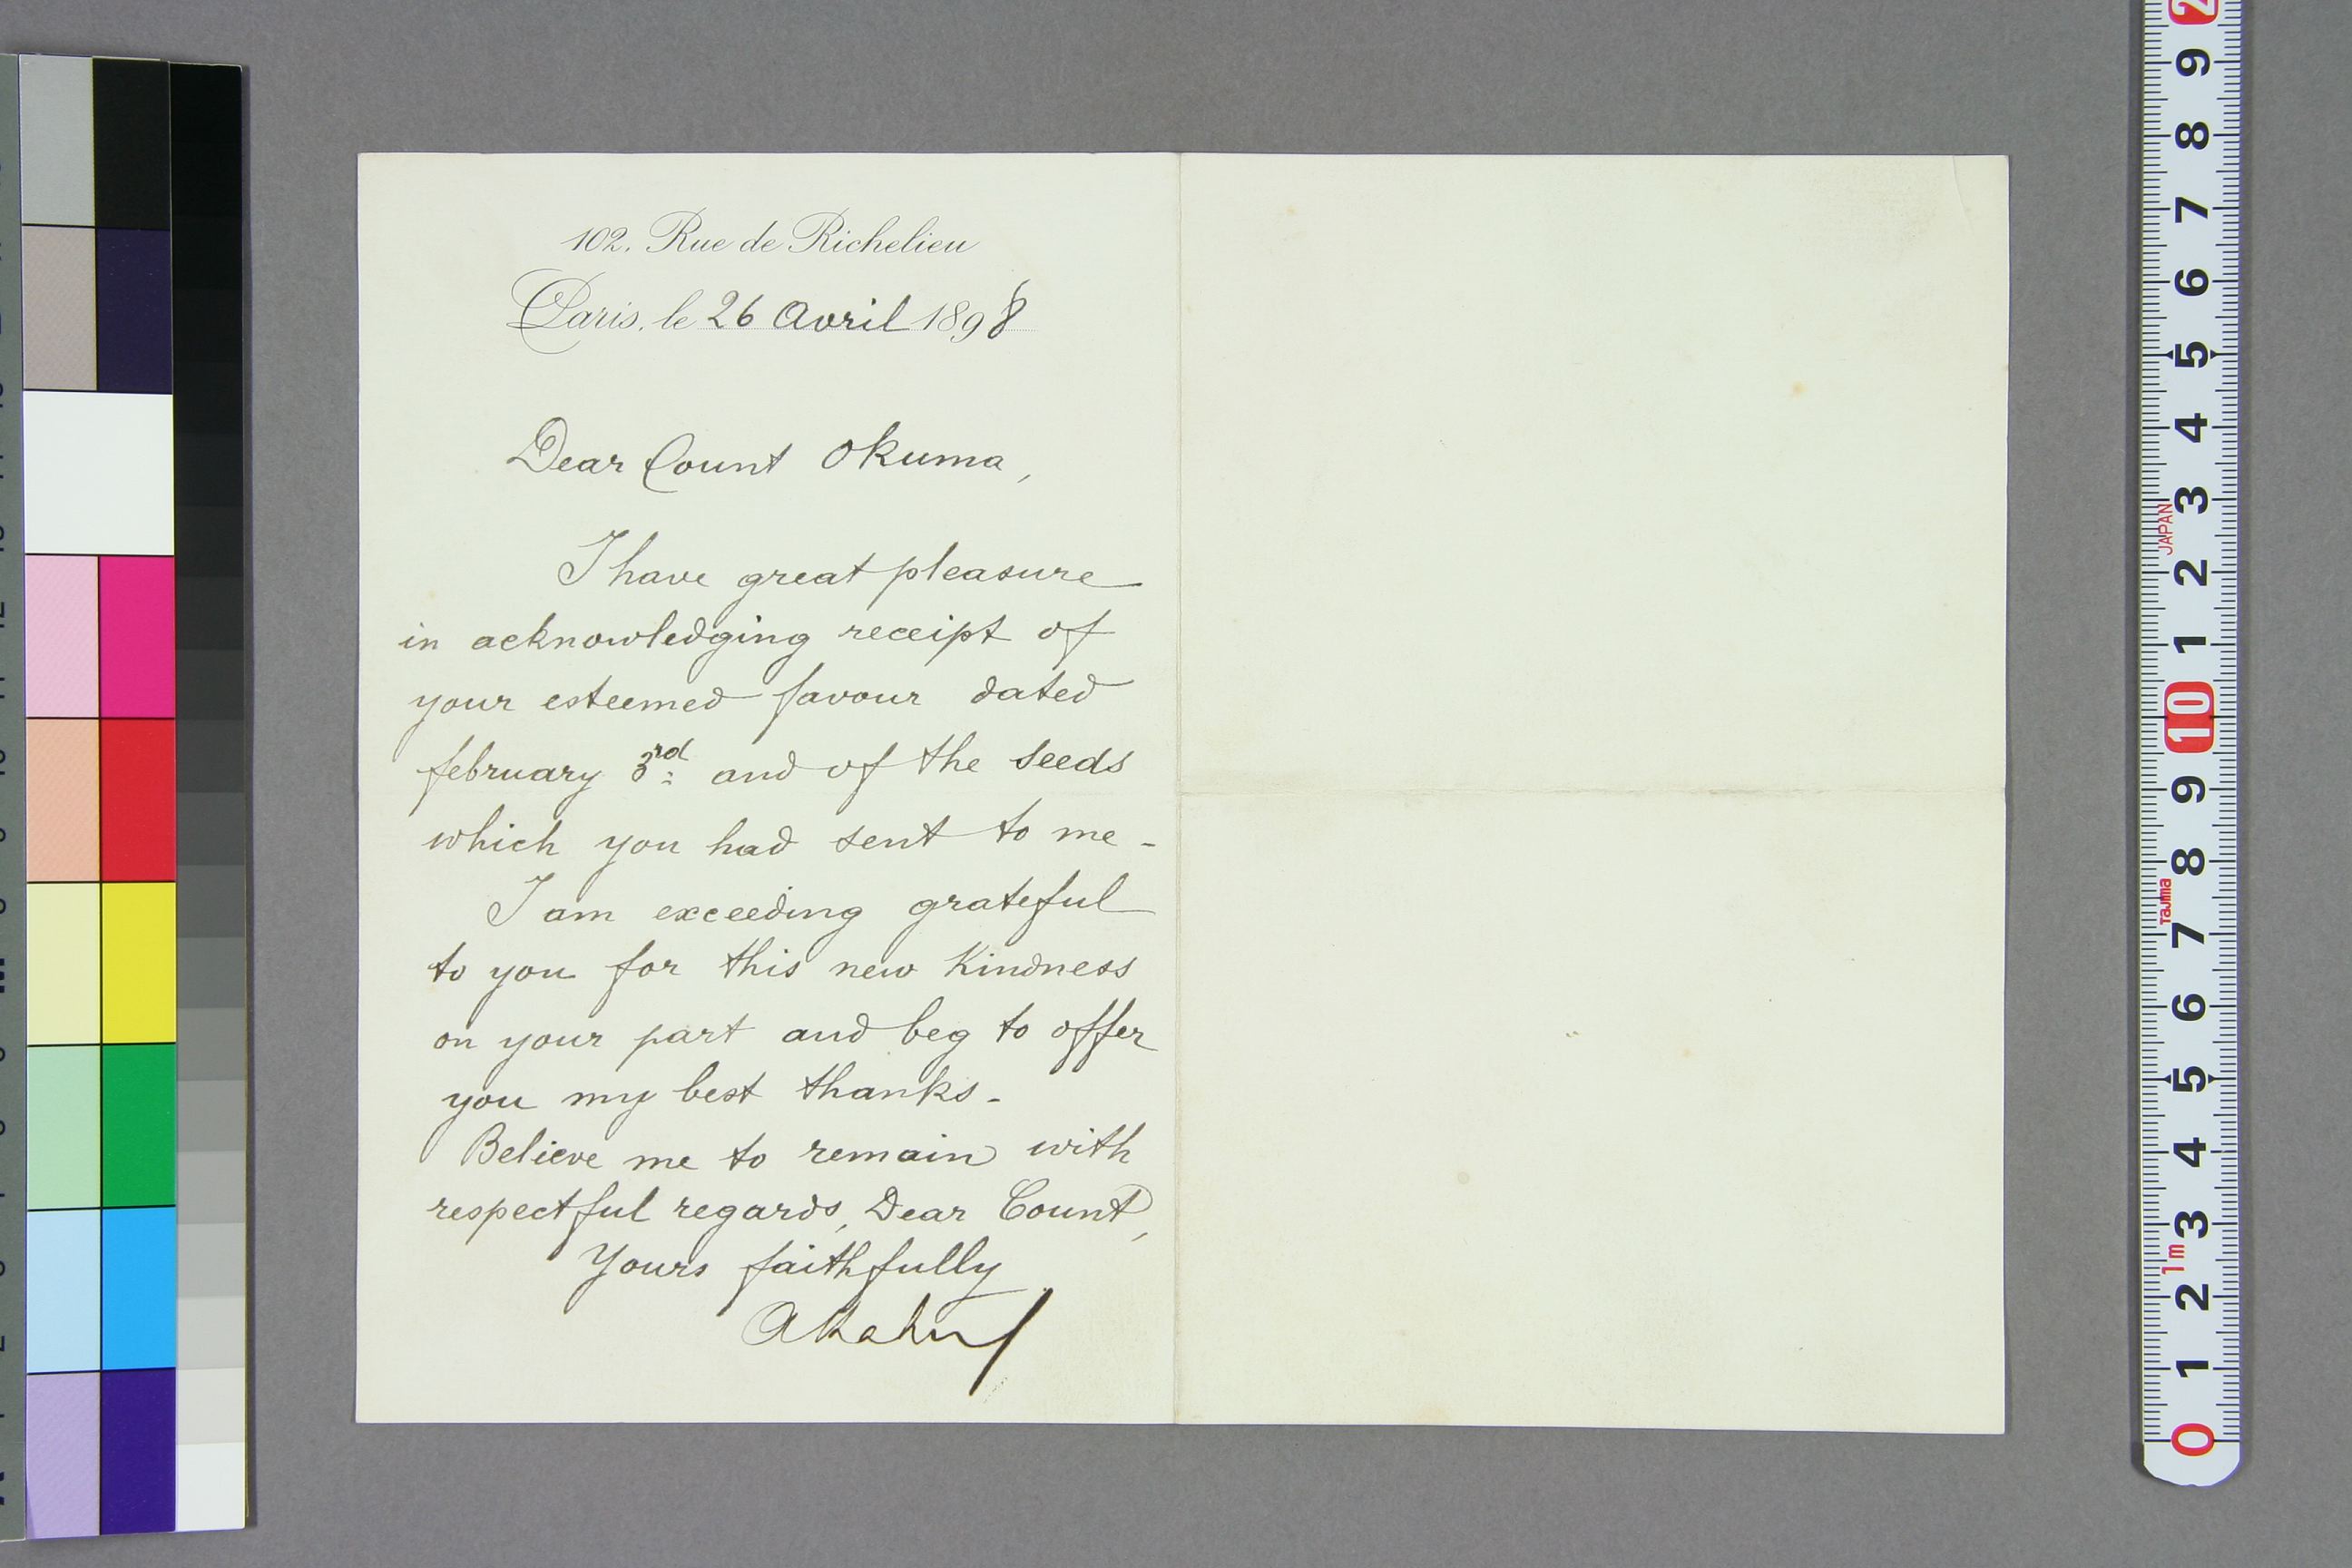 102. Rue de Richelieu
Paris, le 26 Avril 1898
Dear Count Okuma,
I have great pleasure
in acknowledging receipt of
your esteemed favour dated
february 3rd and of the seeds
which you had sent to me -
I am exceeding grateful
to you for this new Kindness
on your part and beg to offer
you my best thanks -
Believe me to remain with
respectful regards, Dear Count,
Yours faithfully
AKahn
2
9
8
7
6
5
4
3
JAPAN
2
1
10
9
8
Tajima
7
6
5
4
3
1m
2
1
0